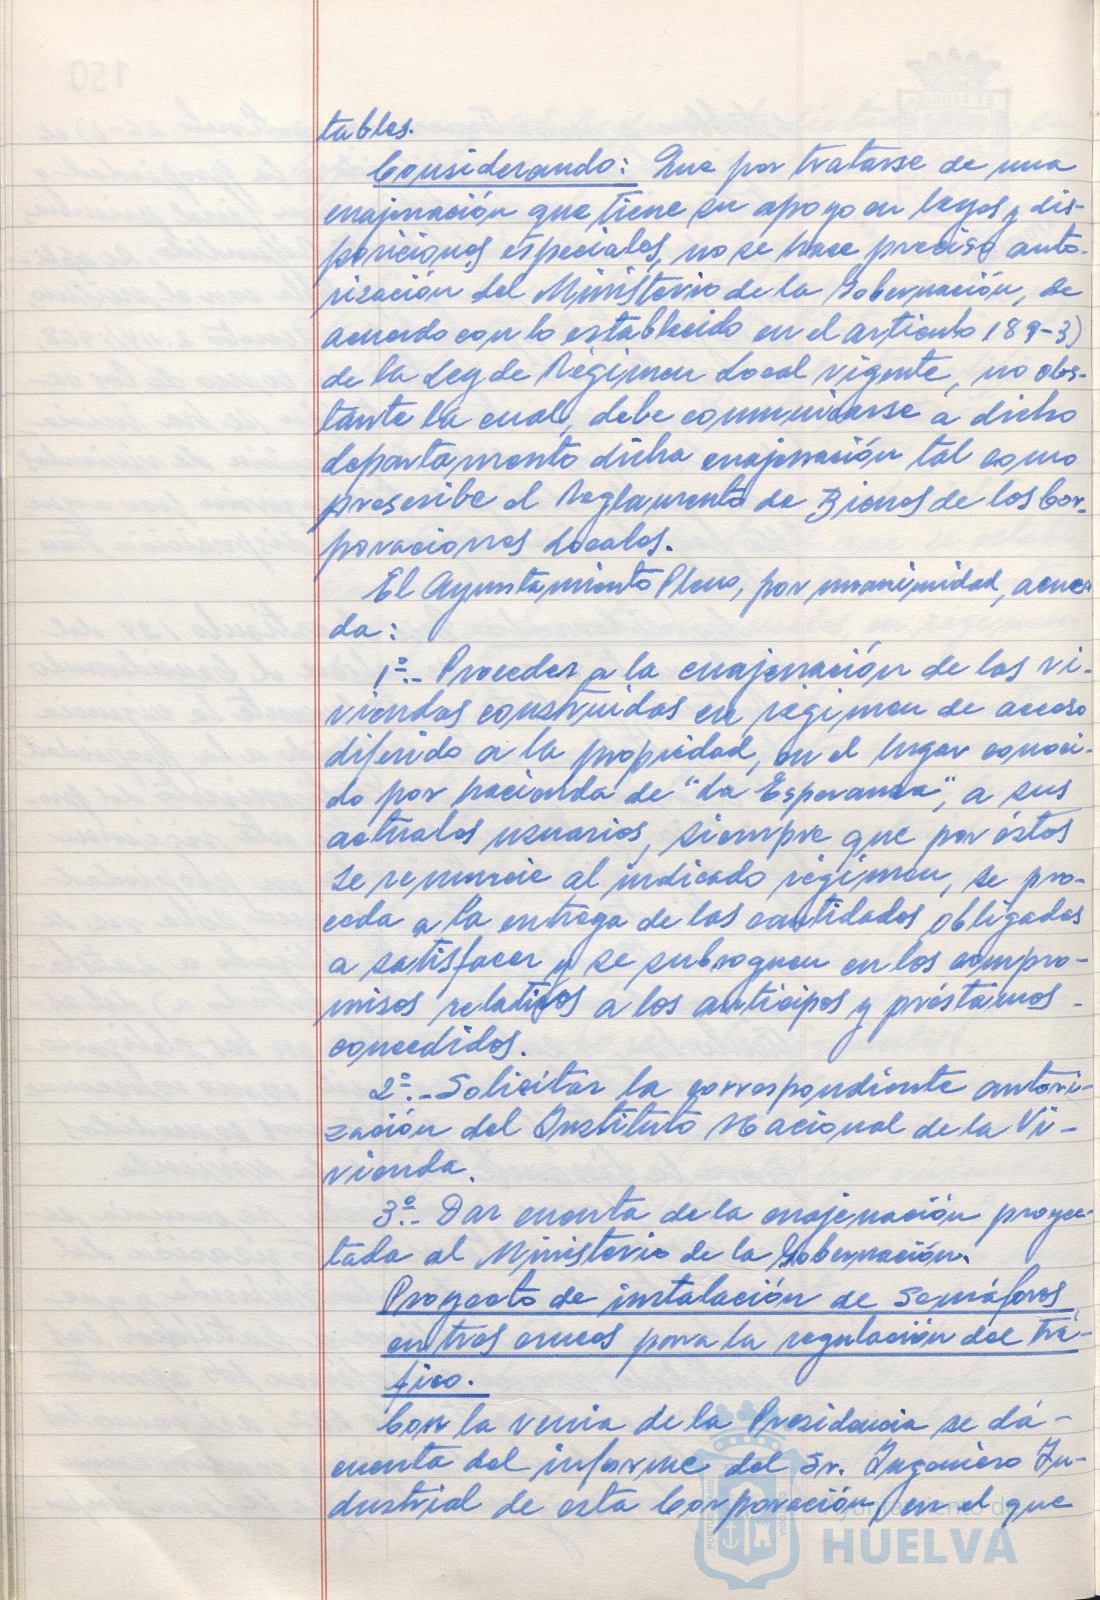 tables.
Considerando: Que por tratarse de una
enajenación que tiene su apoyo en leyes y dis-
posiciones especiales, no se hace preciso auto-
rización del Ministerio de la Gobernación, de
acuerdo con lo establecido en el artículo 189-3)
de la Ley de Régimen Local vigente, no obs-
tante la cual, debe comunicarse a dicho
departamento dicha enajenación tal como
prescribe el Reglamento de Bienes de los Cor-
poraciones Locales.
El Ayuntamiento Pleno, por unanimidad, acuer-
da:
1º.- Proceder a la enajenación de las vi-
viendas construidas en régimen de acceso
diferido a la propiedad, en el lugar conoci-
do por hacienda de "La Esperanza", a sus
actuales usuarios, siempre que por éstos
se renuncie al indicado régimen, se pro-
ceda a la entrega de las cantidades obligadas
a satisfacer y se subroguen en los compro-
misos relativos a los anticipos y préstamos -
concedidos.
2º.- Solicitar la correspondiente autori-
zación del Instituto Nacional de la Vi-
vienda.
3º.- Dar cuenta de la enajenación proyec-
tada al Ministerio de la Gobernación.
Proyecto de instalación de semáforos
en tres cruces para la regulación del trá-
fico.
Con la venia de la Presidencia se dá -
cuenta del informe del Sr. Ingeniero In-
dustrial de esta Corporación, en el que
Ayuntamiento de
HUELVA